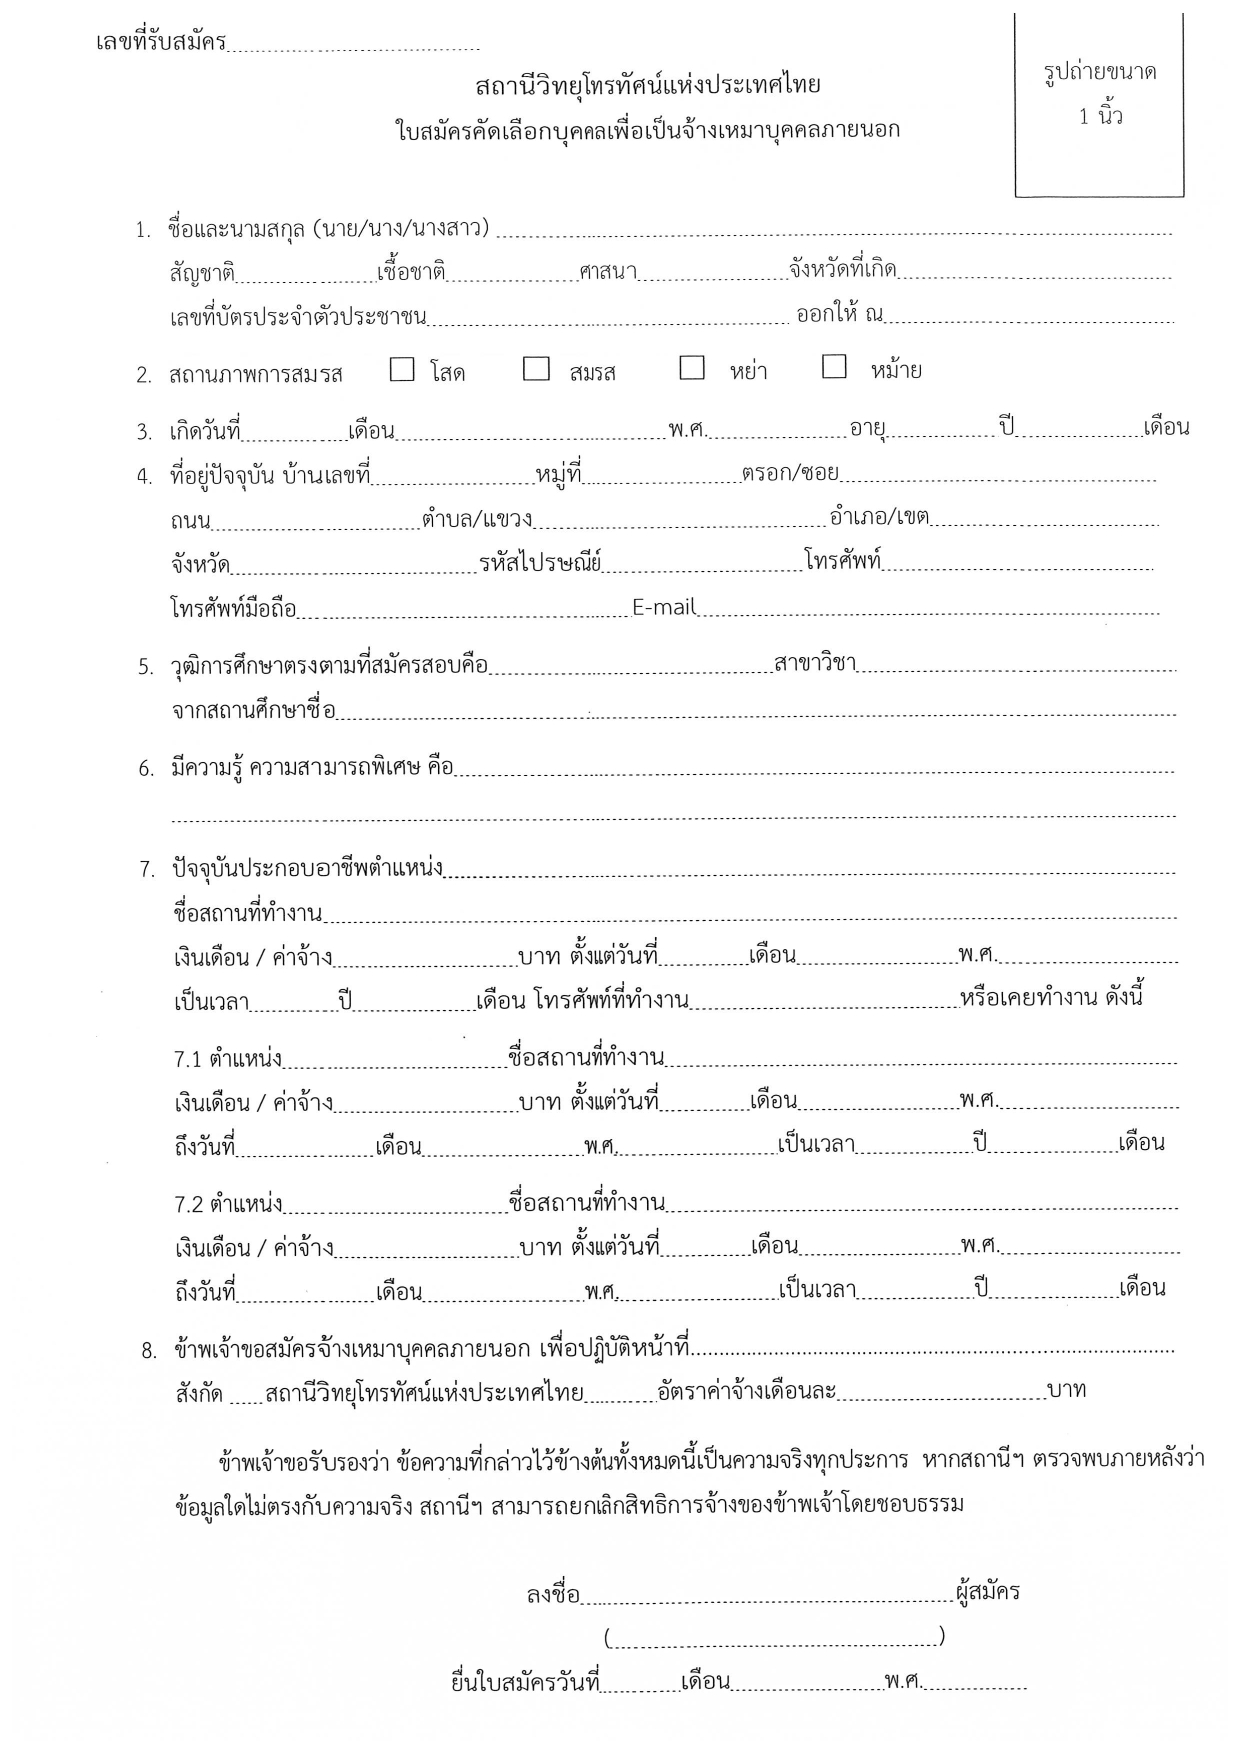 เลขที่รับสมัคร........................................
รูปถ่ายขนาด
1 นิ้ว
สถานีวิทยุโทรทัศน์แห่งประเทศไทย
ใบสมัครคัดเลือกบุคคลเพื่อเป็นจ้างเหมาบุคคลภายนอก
1. ชื่อและนามสกุล (นาย/นาง/นางสาว) ........................................
สัญชาติ....................เชื้อชาติ....................ศาสนา....................จังหวัดที่เกิด....................
เลขที่บัตรประจำตัวประชาชน........................................ ออกให้ ณ....................
2. สถานภาพการสมรส ☐ โสด ☐ สมรส ☐ หย่า ☐ หม้าย
3. เกิดวันที่....................เดือน....................พ.ศ.....................อายุ....................ปี....................เดือน
4. ที่อยู่ปัจจุบัน บ้านเลขที่....................หมู่ที่....................ตรอก/ซอย....................
ถนน....................ตำบล/แขวง....................อำเภอ/เขต....................
จังหวัด....................รหัสไปรษณีย์....................โทรศัพท์....................
โทรศัพท์มือถือ....................E-mail....................
5. วุฒิการศึกษาตรงตามที่สมัครสอบคือ....................สาขาวิชา....................
จากสถานศึกษาชื่อ........................................
6. มีความรู้ ความสามารถพิเศษ คือ........................................
........................................
7. ปัจจุบันประกอบอาชีพตำแหน่ง........................................
ชื่อสถานที่ทำงาน........................................
เงินเดือน / ค่าจ้าง....................บาท ตั้งแต่วันที่....................เดือน....................พ.ศ.....................
เป็นเวลา....................ปี....................เดือน โทรศัพท์ที่ทำงาน....................หรือเคยทำงาน ดังนี้
7.1 ตำแหน่ง....................ชื่อสถานที่ทำงาน....................
เงินเดือน / ค่าจ้าง....................บาท ตั้งแต่วันที่....................เดือน....................พ.ศ.....................
ถึงวันที่....................เดือน....................พ.ศ.....................เป็นเวลา....................ปี....................เดือน
7.2 ตำแหน่ง....................ชื่อสถานที่ทำงาน....................
เงินเดือน / ค่าจ้าง....................บาท ตั้งแต่วันที่....................เดือน....................พ.ศ.....................
ถึงวันที่....................เดือน....................พ.ศ.....................เป็นเวลา....................ปี....................เดือน
8. ข้าพเจ้าขอสมัครจ้างเหมาบุคคลภายนอก เพื่อปฏิบัติหน้าที่........................................
สังกัด ......สถานีวิทยุโทรทัศน์แห่งประเทศไทย.............อัตราค่าจ้างเดือนละ....................บาท
ข้าพเจ้าขอรับรองว่า ข้อความที่กล่าวไว้ข้างต้นทั้งหมดนี้เป็นความจริงทุกประการ หากสถานีฯ ตรวจพบภายหลังว่า
ข้อมูลใดไม่ตรงกับความจริง สถานีฯ สามารถยกเลิกสิทธิการจ้างของข้าพเจ้าโดยชอบธรรม
ลงชื่อ........................................ผู้สมัคร
(........................................)
ยื่นใบสมัครวันที่....................เดือน....................พ.ศ.....................